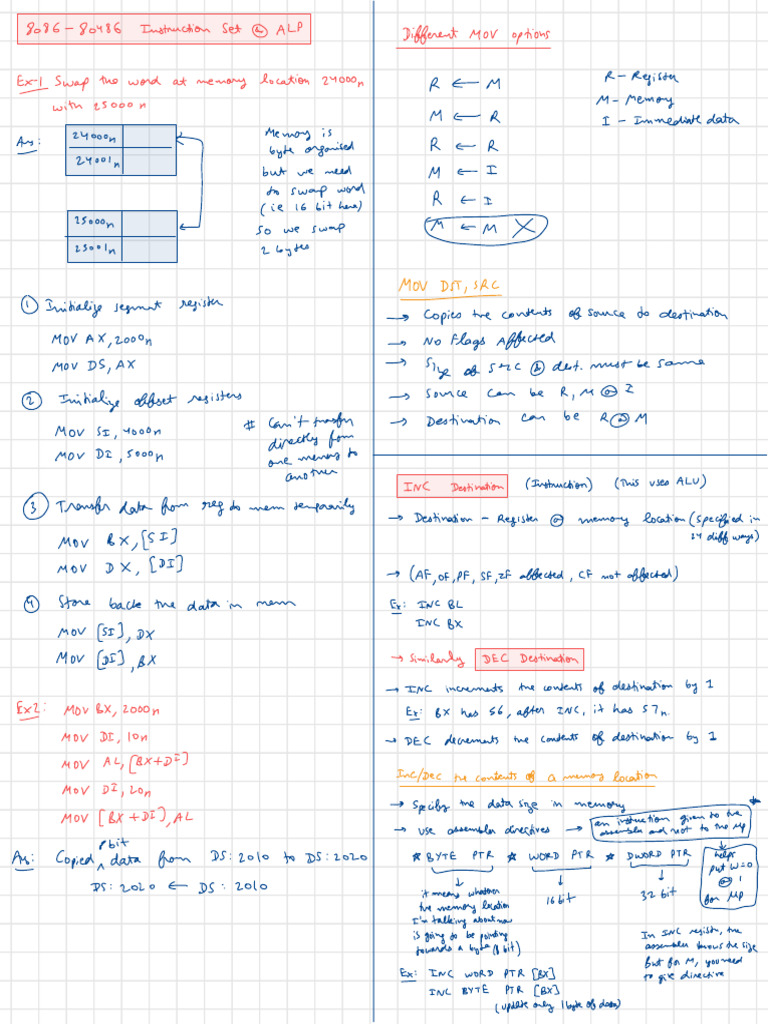 8086 – 80486 Instruction Set & ALP
Ex-1 Swap the word at memory location 24000H
with 25000H
Ans:
24000H
24001H
25000H
25001H
Memory is
byte organised
but we need
to swap word
(ie 16 bit here)
so we swap
2 bytes
① Initialize segment register
MOV AX, 2000H
MOV DS, AX
② Initialize offset registers
MOV SI, 4000H
MOV DI, 5000H
# Can't transfer
directly from
one memory to
another
③ Transfer data from reg to mem temporarily
MOV BX, [SI]
MOV DX, [DI]
④ Store back the data in mem
MOV [SI], DX
MOV [DI], BX
Ex2: MOV BX, 2000H
MOV DI, 10H
MOV AL, [BX+DI]
MOV DI, 20H
MOV [BX + DI], AL
8 bit
Ans: Copied ^ data from DS:2010 to DS:2020
DS:2020 ← DS:2010
Different MOV options
R ← M
M ← R
R ← R
M ← I
R ← I
M ← M X
R – Register
M – Memory
I – Immediate data
MOV DST, SRC
→ Copies the contents of source to destination
→ No flags Affected
→ Size of src & dest. must be same
→ Source can be R, M or I
→ Destination can be R or M
INC Destination (Instruction) (This uses ALU)
→ Destination – Register or memory location (specified in
24 diff ways)
→ (AF, OF, PF, SF, ZF affected, CF not affected)
Ex: INC BL
INC BX
→ Similarly DEC Destination
→ INC increments the contents of destination by 1
Ex: BX has 56, after INC, it has 57H.
→ DEC decrements the contents of destination by 1
Inc/Dec the contents of a memory location
→ Specify the data size in memory
→ Use assembler directives → an instruction given to the
assembler and not to the μp
* BYTE PTR * WORD PTR * DWORD PTR
helps
put W=0
or 1
for μp
it means whatever
the memory location
I'm talking about now
is going to be pointing
towards a byte (8 bit)
16 bit
32 bit
In INC register, the
assembler knows the size
but for M, you need
to give directive
Ex: INC WORD PTR [BX]
INC BYTE PTR [BX]
(update only 1 byte of data)